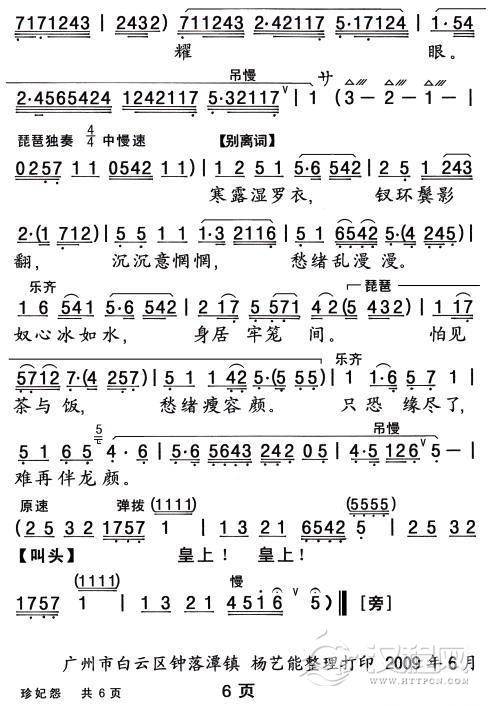 7171243 | 2432) | 711243 2·42117 5·17124 | 1·54
耀 眼。
吊慢 サ
2·4565424 1242117 5·32117 ∨ | 1 (3 – 2 – 1 –)
琵琶独奏 4/4 中慢速 【别离词】
0257 11 0542 11) | 1 2 5 1 5·6 542 | 2 5 1 243
寒露湿罗衣, 钗环鬓影
2·(1 712) | 5 5 1 1 1·3 2116 | 5 1 6542 5·(4 245) |
翻, 沉沉意惘惘, 愁绪乱漫漫。
乐齐 琵琶
1 6 541 5·6 542 | 2 17 5 571 4 2 (5 432) | 1 17
奴心冰如水, 身居牢笼间。 怕见
乐齐
5712 7·(4 257) | 5 1 1 42 5·(5 55) | 1 1·6 5 4
茶与饭, 愁绪瘦容颜。 只恐缘尽了,
吊慢
5 1 6 5 5 4·6 | 5·6 5643 242 0 5 | 4·5 126 ∨ 5 – |
难再伴龙颜。
原速 弹拨 (1111) (5555)
(25 32 1757 1 | 13 21 6542 5 | 25 32
【叫头】 皇上! 皇上!
(1111) 慢
1757 1 | 13 21 4516 ∨ 5) ‖ [旁]
广州市白云区钟落潭镇 杨艺能整理打印 2009年6月
珍妃怨 共6页 6页
汉程网
HTTPCN.COM